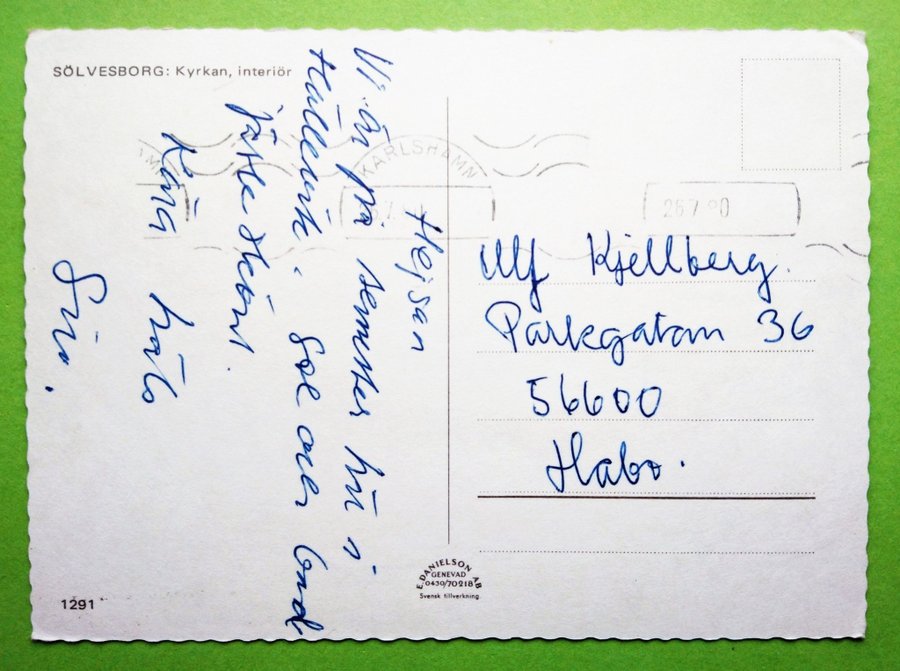 SÖLVESBORG: Kyrkan, interiör
KARLSHAMN
26 7 80
Hejsan
Vi är på semester hu i
Hällevik. Sol och
jätteskönt.
Kära
Siv.
Ulf Kjellberg.
Parkgatan 36
56600
Habo.
E. DANIELSON AB
GENEVAD
0430/70218
Svensk tillverkning.
1291